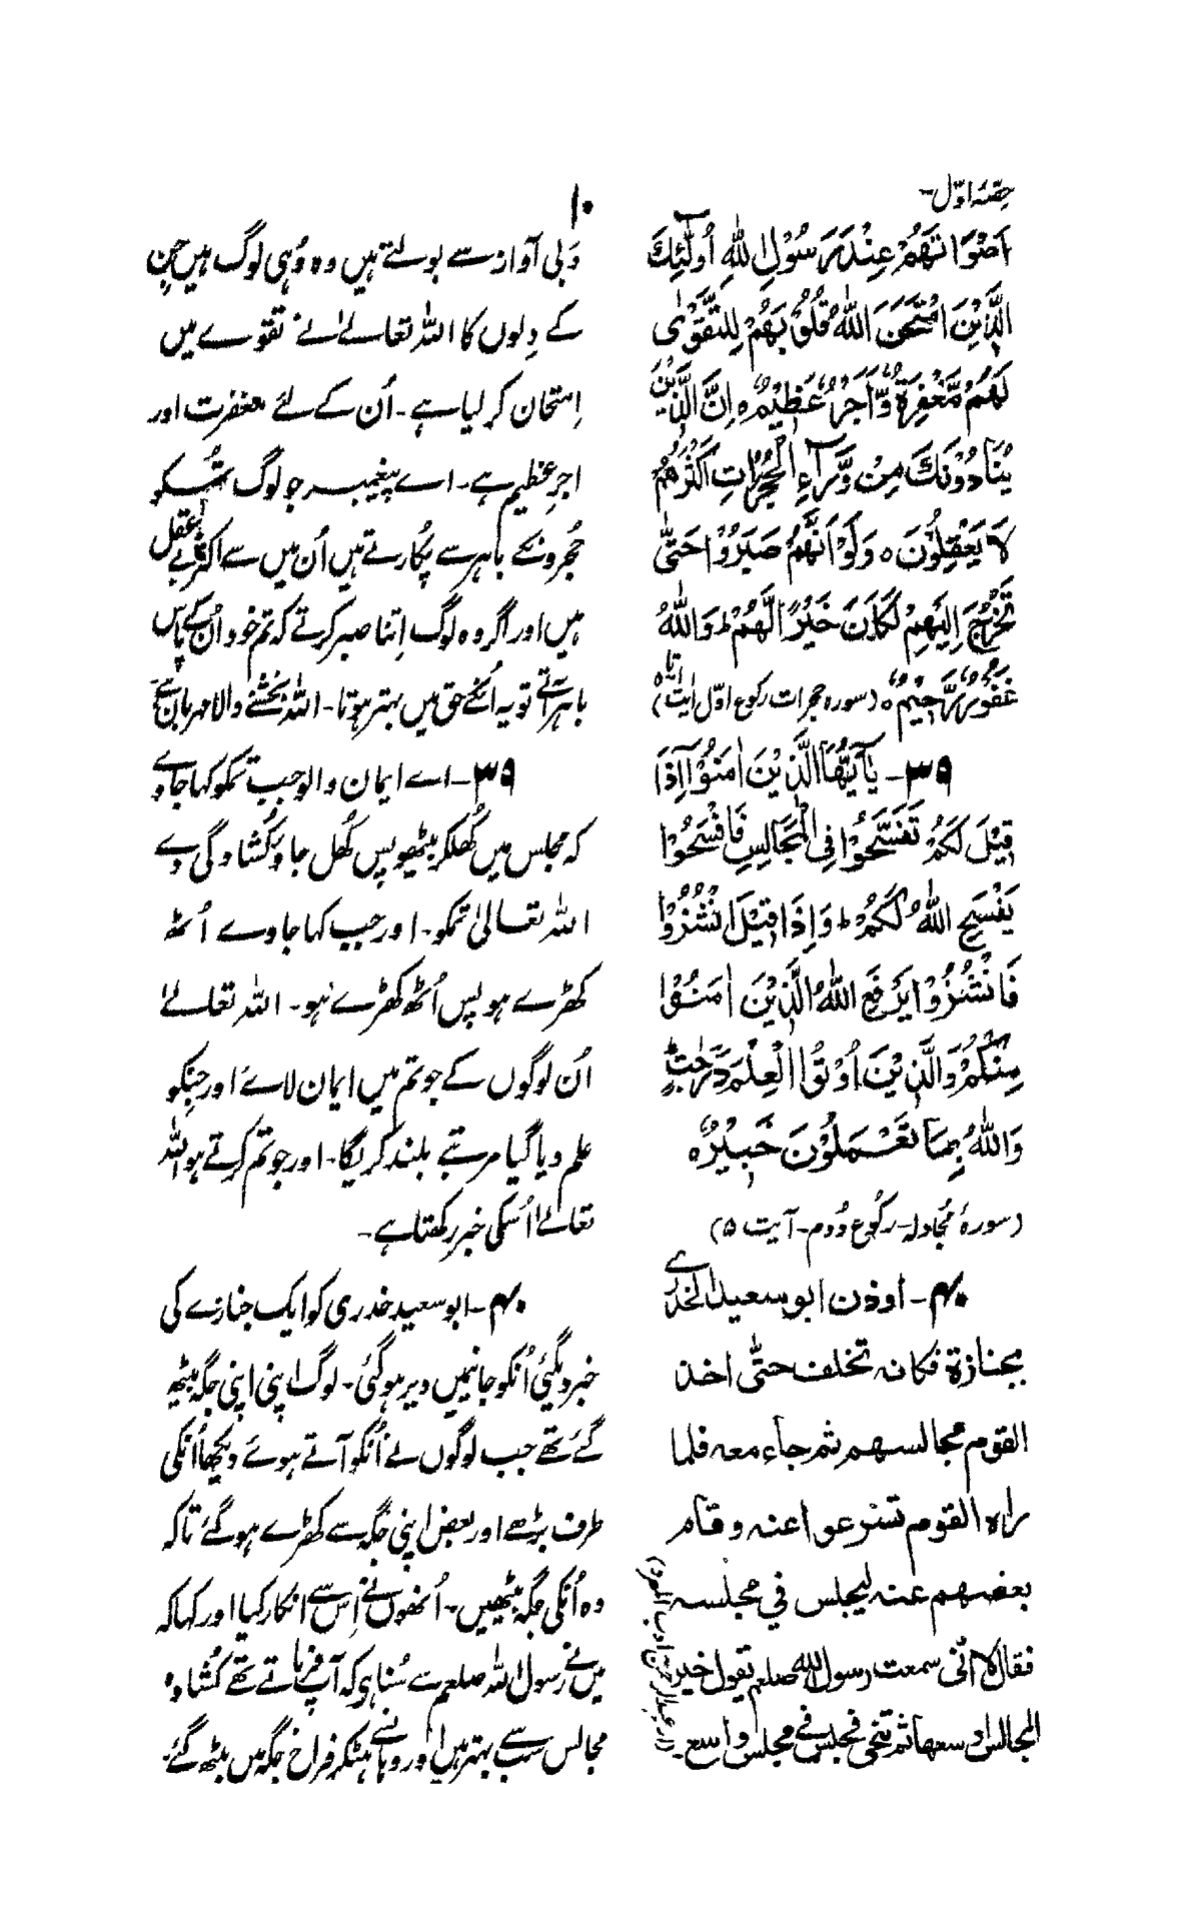 حصّہ اوّل۔
۱۰
اَصْوَاتَهُمْ عِنْدَ رَسُوْلِ اللّٰهِ اُولٰٓئِكَ
الَّذِيْنَ امْتَحَنَ اللّٰهُ قُلُوْبَهُمْ لِلتَّقْوٰى
لَهُمْ مَّغْفِرَةٌ وَّاَجْرٌ عَظِيْمٌ ه اِنَّ الَّذِيْنَ
يُنَادُوْنَكَ مِنْ وَّرَآءِ الْحُجُرٰتِ اَكْثَرُهُمْ
لَا يَعْقِلُوْنَ ه وَلَوْ اَنَّهُمْ صَبَرُوْا حَتّٰى
تَخْرُجَ اِلَيْهِمْ لَكَانَ خَيْرًا لَّهُمْ ط وَاللّٰهُ
غَفُوْرٌ رَّحِيْمٌ ه (سورہ حجرات رکوع اوّل ایت ا تا ۵)
۳۹۔ يٰٓاَيُّهَا الَّذِيْنَ اٰمَنُوْآ اِذَا
قِيْلَ لَكُمْ تَفَسَّحُوْا فِى الْمَجَالِسِ فَافْسَحُوْا
يَفْسَحِ اللّٰهُ لَكُمْ ط وَاِذَا قِيْلَ انْشُزُوْا
فَانْشُزُوْا يَرْفَعِ اللّٰهُ الَّذِيْنَ اٰمَنُوْا
مِنْكُمْ وَالَّذِيْنَ اُوْتُوا الْعِلْمَ دَرَجٰتٍ ط
وَاللّٰهُ بِمَا تَعْمَلُوْنَ خَبِيْرٌ ه
(سورۂ مُجادلہ۔ رکُوع دُوم۔ آیت ۵)
۴۰۔ اوذن ابو سعید الخدری
بجنازة فكانه تخلف حتّى اخذ
القوم مجالسهم ثم جاء معه فلما
راه القوم تسرعوا عنه وقام
بعضهم عنه ليجلس في مجلسه
فقال لا انّى سمعت رسول الله صلعم يقول خير
المجالس اوسعها ثم تنحى فجلس فے مجلس واسع۔
دَبی آواز سے بولتے ہیں وہ وُہی لوگ ہیں جن
کے دِلوں کا اللہ تعالےٰ نے تقوے میں
اِمتحان کر لیا ہے۔ اُن کے لئے مغفرت اور
اجرِ عظیم ہے۔ اے پیغیبر جو لوگ تُمکو
حُجرونکے باہر سے پُکارتے ہیں اُن میں سے اکثر بے عقل
ہیں اور اگر وہ لوگ اِتنا صبر کرتے کہ تم خود اُن کے پاس
باہر آتے تو یہ اُنکے حق میں بہتر ہوتا۔ اللہ بخشنے والا مہربان ہے
۳۹۔ اے ایمان والو جب تمکو کہا جاوے
کہ مجلس میں کُھلکر بیٹھو پس کُھل جاؤ کُشادگی دے
اللہ تعالیٰ تمکو۔ اور جب کہا جاوے اُٹھ
کھڑے ہو پس اُٹھ کھڑے ہو۔ اللہ تعالےٰ
اُن لوگوں کے جو تم میں ایمان لائے اور جنکو
علم دیا گیا مرتبے بلند کریگا۔ اور جو تم کرتے ہو اللہ
تعالےٰ اُسکی خبر رکھتا ہے۔
۴۰۔ ابو سعید خدری کو ایک جنازے کی
خبر دیگئی اُنکو جانیمیں دیر ہو گئی۔ لوگ اپنی اپنی جگہ بیٹھ
گئے تھے جب لوگوں نے اُنکو آتے ہوئے دیکھا اُنکی
طرف بڑھے اور بعض اپنی جگہ سے کھڑے ہو گئے تاکہ
وہ اُنکی جگہ بیٹھیں۔ اُنھوں نے اِس سے انکار کیا اور کہا کہ
میں نے رسول اللہ صلعم سے سُنا ہی کہ آپ فرماتے تھے کُشادہ
مجالس سب سے بہتر ہیں اور وہاں سے ہٹکر فراخ جگہ میں بیٹھ گئے۔